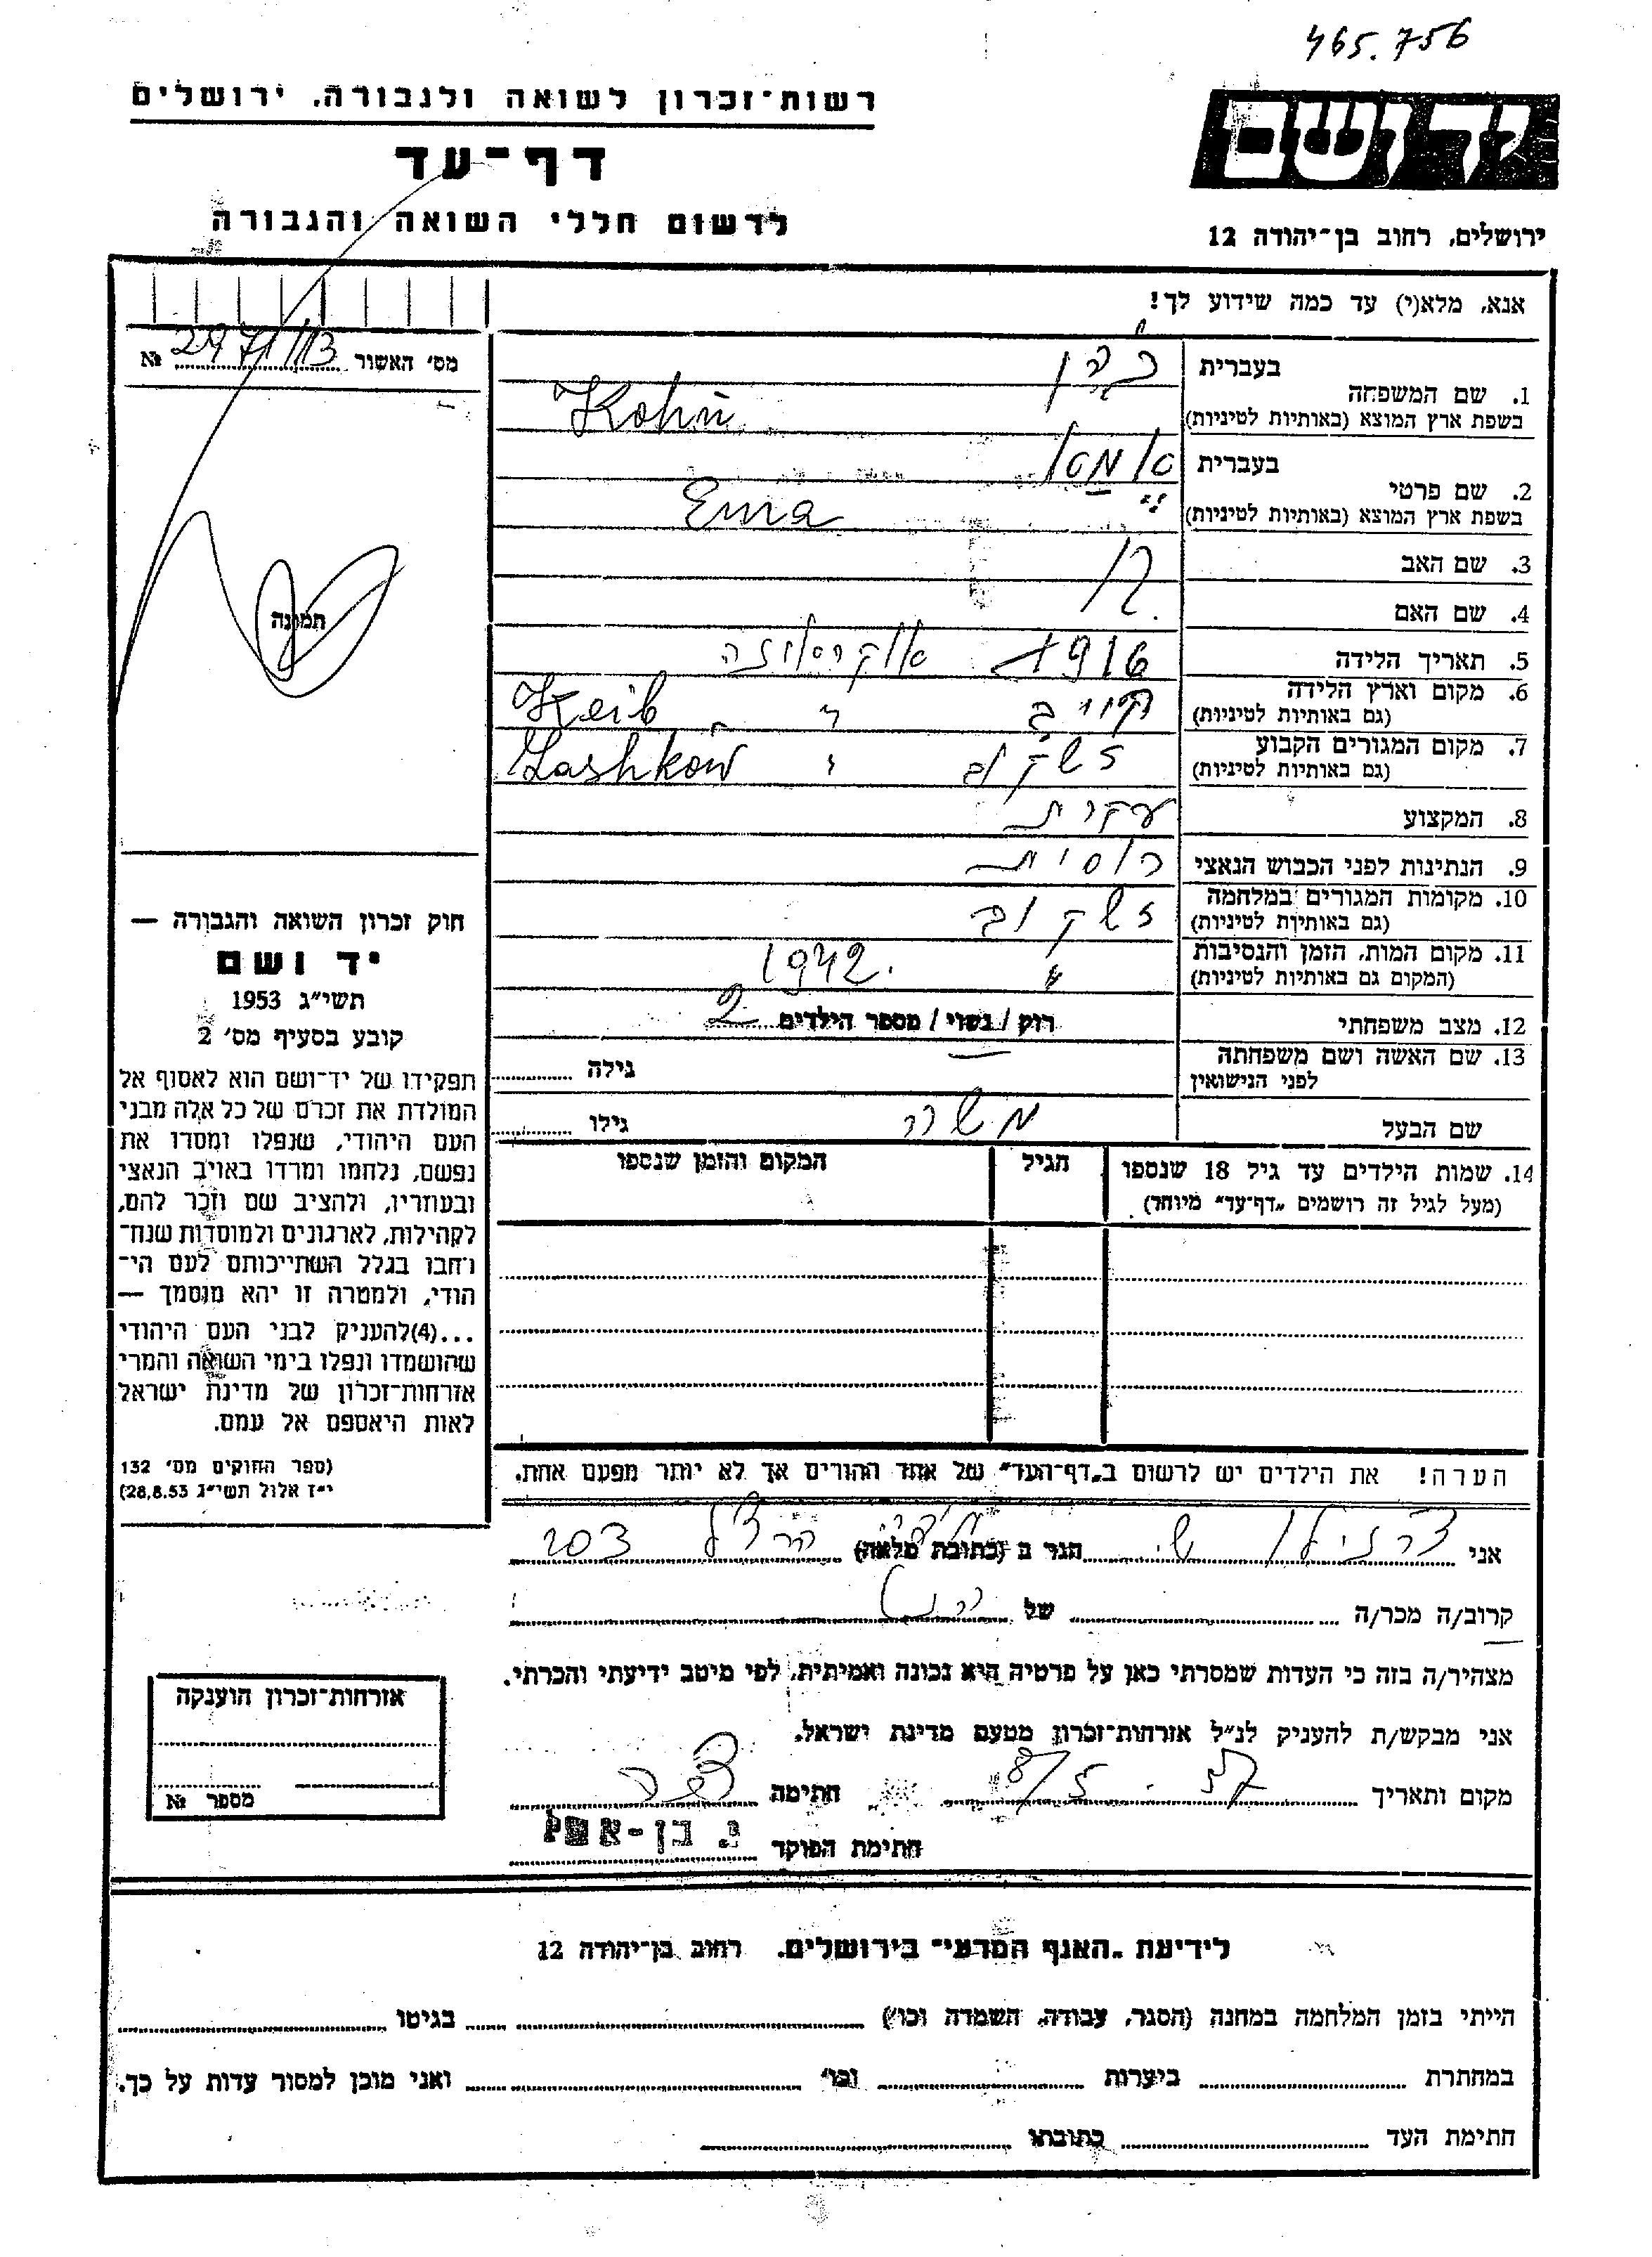 465.756
רשות־זכרון לשואה ולגבורה, ירושלים
דף־עד
לרשום חללי השואה והגבורה
יד ושם
ירושלים, רחוב בן־יהודה 12
אנא, מלא(י) עד כמה שידוע לך!
מס' האשור №
1. שם המשפחה
בעברית כהן
בשפת ארץ המוצא (באותיות לטיניות) Kohn
2. שם פרטי
בעברית
בשפת ארץ המוצא (באותיות לטיניות) Ema
3. שם האב
4. שם האם
5. תאריך הלידה 1916
אוקראינה
6. מקום וארץ הלידה
(גם באותיות לטיניות) קייב " Keib
7. מקום המגורים הקבוע
(גם באותיות לטיניות) זשקוב " Zashkow
8. המקצוע עקרת
9. הנתינות לפני הכבוש הנאצי רוסית
10. מקומות המגורים במלחמה
(גם באותיות לטיניות) זשקוב
11. מקום המות, הזמן והנסיבות
(המקום גם באותיות לטיניות) " 1942.
12. מצב משפחתי רווק / נשוי / מספר הילדים 2
13. שם האשה ושם משפחתה
לפני הנישואין גילה
שם הבעל משה גילו
14. שמות הילדים עד גיל 18 שנספו
(מעל לגיל זה רושמים "דף־עד" מיוחד)
הגיל
המקום והזמן שנספו
תמונה
חוק זכרון השואה והגבורה —
יד ושם
תשי"ג 1953
קובע בסעיף מס' 2
תפקידו של יד־ושם הוא לאסוף אל
המולדת את זכרם של כל אלה מבני
העם היהודי, שנפלו ומסרו את
נפשם, נלחמו ומרדו באויב הנאצי
ובעוזריו, ולהציב שם וזכר להם,
לקהילות, לארגונים ולמוסדות שנח־
רבו בגלל השתייכותם לעם הי־
הודי, ולמטרה זו יהא מוסמך —
...(4)להעניק לבני העם היהודי
שהושמדו ונפלו בימי השואה והמרי
אזרחות־זכרון של מדינת ישראל
לאות היאספם אל עמם.
(ספר החוקים מס' 132
י"ז אלול תשי"ג 28.8.53)
הערה! את הילדים יש לרשום ב"דף־העד" של אחד ההורים אך לא יותר מפעם אחת.
אני הגר ב (כתובת מלאה)
קרוב/ה מכר/ה של
מצהיר/ה בזה כי העדות שמסרתי כאן על פרטיה היא נכונה ואמיתית, לפי מיטב ידיעתי והכרתי.
אני מבקש/ת להעניק לנ"ל אזרחות־זכרון מטעם מדינת ישראל.
מקום ותאריך 8/5 . 57 חתימה
חתימת הפוקד
אזרחות־זכרון הוענקה
מספר №
לידיעת "האגף המדעי" בירושלים, רחוב בן־יהודה 12
הייתי בזמן המלחמה במחנה (הסגר, עבודה, השמדה וכו') בגיטו
במחתרת ביערות וכו' ואני מוכן למסור עדות על כך.
חתימת העד כתובתו